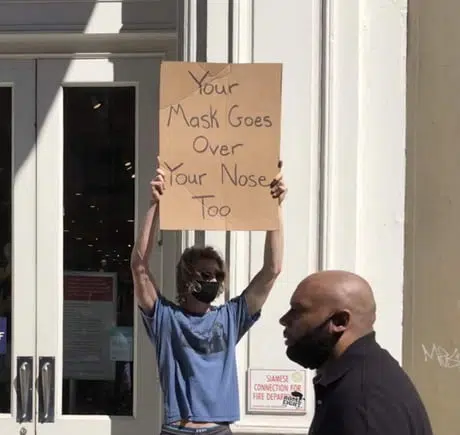 Your
Mask Goes
Over
Your Nose
Too
SIAMESE
CONNECTION FOR
FIRE DEPARTMENT